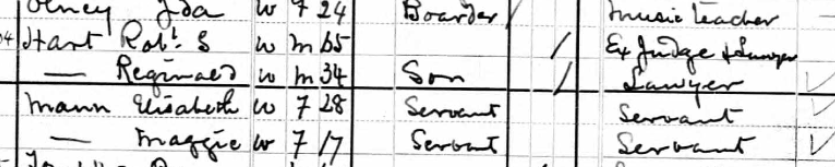 Olney Ida w F 24 Boarder music teacher
Hart Robt. S w m 65 Ex Judge & Lawyer
— Reginald w m 34 Son Lawyer
Mann Elisabeth w F 28 Servant Servant
— Maggie w F 17 Servant Servant